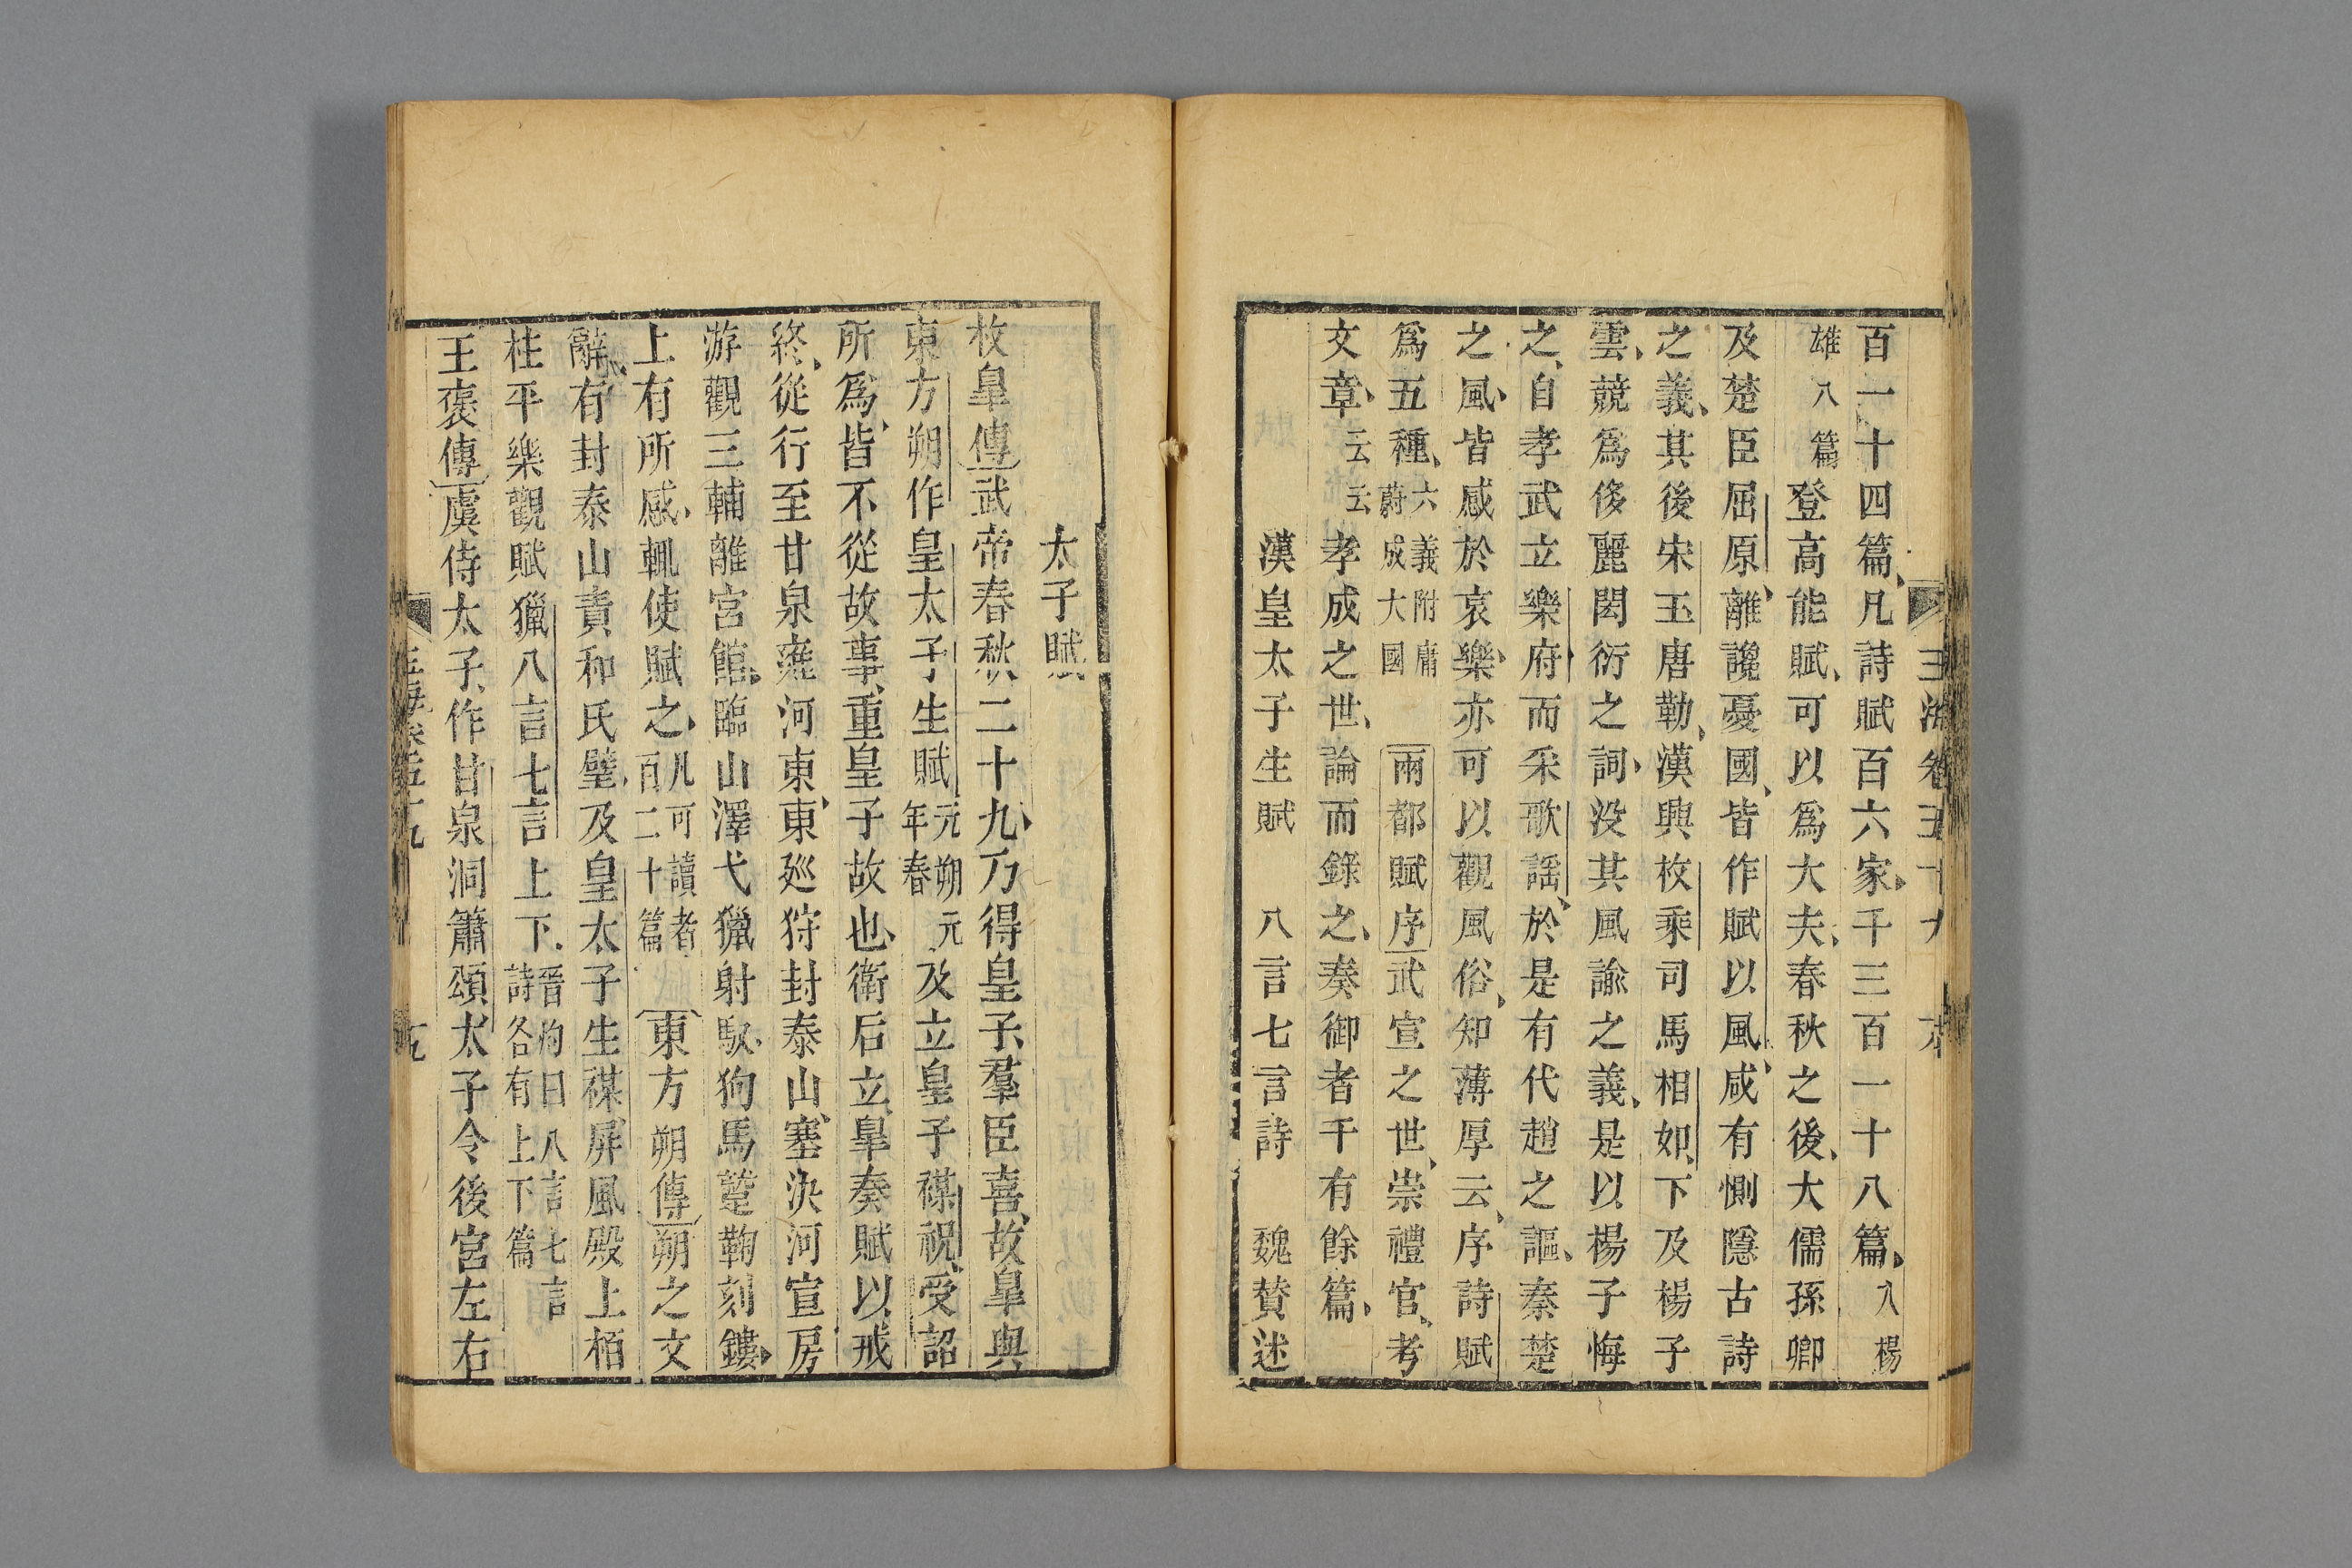 百一十四篇凡詩賦百六家千三百一十八篇入楊
雄八篇登高能賦可以爲大夫春秋之後大儒孫卿
及楚臣屈原離讒憂國皆作賦以風咸有惻隱古詩
之義其後宋玉唐勒漢興枚乘司馬相如下及楊子
雲競爲侈麗閎衍之詞没其風諭之義是以楊子悔
之自孝武立樂府而采歌謡於是有代趙之謳秦楚
之風皆感於哀樂亦可以觀風俗知薄厚云序詩賦
爲五種六義附庸蔚成大國兩都賦序武宣之世崇禮官考
文章云云孝成之世論而錄之奏御者千有餘篇
漢皇太子生賦 八言七言詩 魏賛述
太子賦
枚皐傳武帝春秋二十九乃得皇子羣臣喜故皐與
東方朔作皇太子生賦元朔元年春及立皇子禖祝受詔
所爲皆不從故事重皇子故也衛后立皐奏賦以戒
終從行至甘泉雍河東東廵狩封泰山塞決河宣房
游觀三輔離宮館臨山澤弋獵射馭狗馬蹵鞠刻鏤
上有所感輒使賦之凡可讀者百二十篇東方朔傳朔之文
辭有封泰山責和氏璧及皇太子生禖屏風殿上栢
柱平樂觀賦獵八言七言上下晉灼曰八言七言詩各有上下篇
王褒傳虞侍太子作甘泉洞簫頌太子令後宮左右